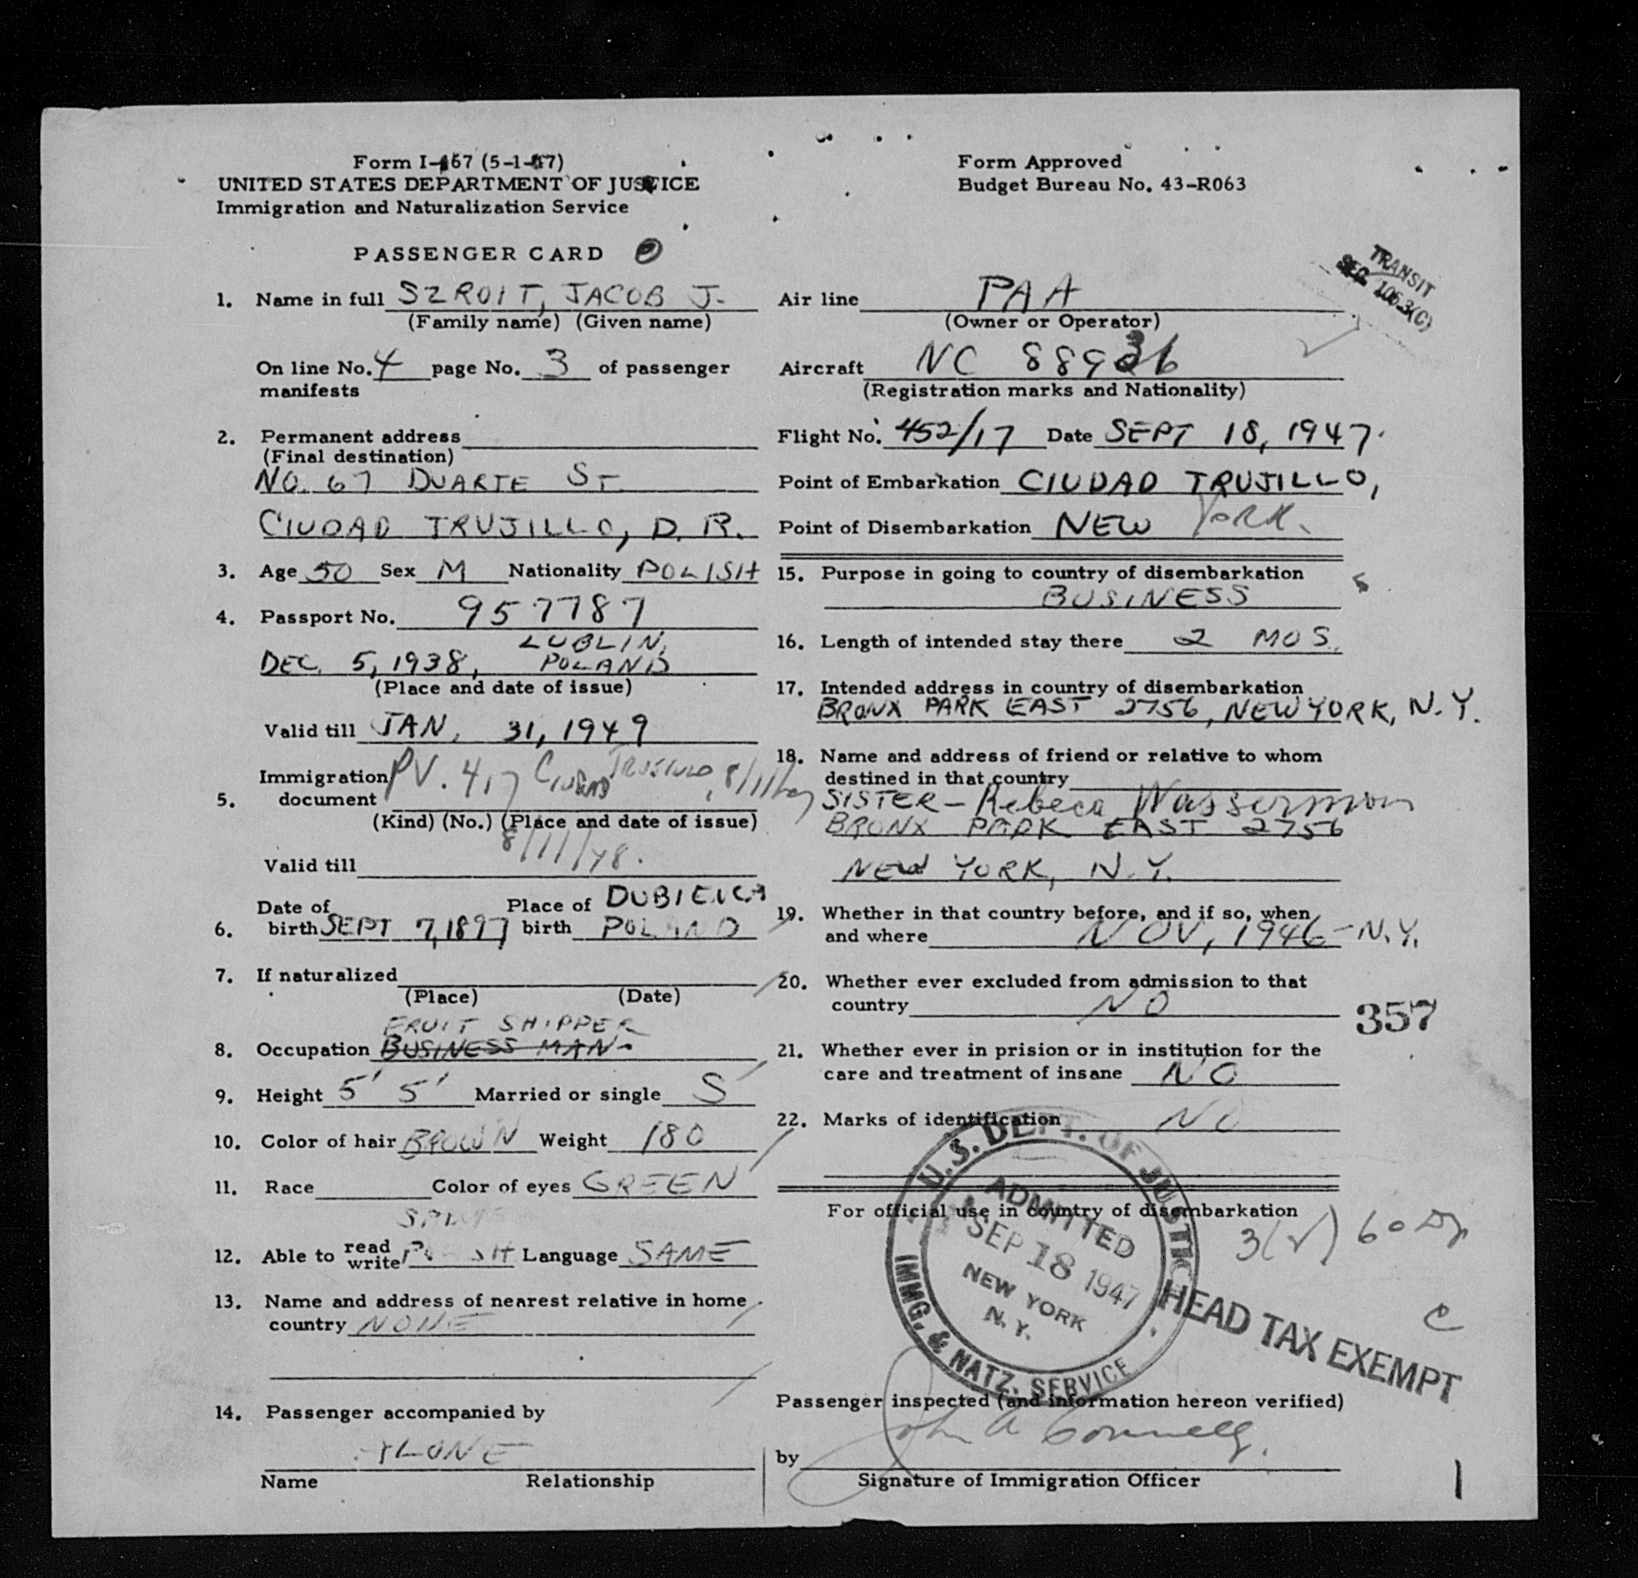 Form I-467 (5-1-47)
UNITED STATES DEPARTMENT OF JUSTICE
Immigration and Naturalization Service
Form Approved
Budget Bureau No. 43-R063
PASSENGER CARD
TRANSIT
SEC 106.3(C)
1. Name in full SZROIT, JACOB J.
(Family name) (Given name)
On line No. 4 page No. 3 of passenger
manifests
2. Permanent address
(Final destination)
NO. 67 DUARTE ST
CIUDAD TRUJILLO, D. R.
3. Age 50 Sex M Nationality POLISH
4. Passport No. 957787
LUBLIN,
DEC. 5, 1938, POLAND
(Place and date of issue)
Valid till JAN. 31, 1949
Immigration PV. 417 CIUDAD TRUJILLO, 8/11/47
5. document
(Kind) (No.) (Place and date of issue)
8/11/48.
Valid till
Date of Place of DUBIENCA
6. birth SEPT 7, 1897 birth POLAND
7. If naturalized
(Place) (Date)
FRUIT SHIPPER
8. Occupation BUSINESS MAN
9. Height 5' 5' Married or single S
10. Color of hair BROWN Weight 180
11. Race Color of eyes GREEN
12. Able to read
write POLISH Language SAME
13. Name and address of nearest relative in home
country NONE
14. Passenger accompanied by
ALONE
Name Relationship
Air line PAA
(Owner or Operator)
Aircraft NC 88936
(Registration marks and Nationality)
Flight No. 452/17 Date SEPT 18, 1947.
Point of Embarkation CIUDAD TRUJILLO,
Point of Disembarkation NEW YORK.
15. Purpose in going to country of disembarkation
BUSINESS
16. Length of intended stay there 2 MOS.
17. Intended address in country of disembarkation
BRONX PARK EAST 2756, NEW YORK, N.Y.
18. Name and address of friend or relative to whom
destined in that country
SISTER - Rebeca Wasserman
BRONX PARK EAST 2756
NEW YORK, N.Y.
19. Whether in that country before, and if so, when
and where NOV, 1946 - N.Y.
20. Whether ever excluded from admission to that
country NO
357
21. Whether ever in prision or in institution for the
care and treatment of insane NO
22. Marks of identification NO
For official use in country of disembarkation
3(V) 60 Dy
U.S. DEPT. OF JUSTICE
ADMITTED
SEP 18 1947
NEW YORK
N.Y.
IMMG. & NATZ. SERVICE
HEAD TAX EXEMPT
C
Passenger inspected (and information hereon verified)
by John A Connelly.
Signature of Immigration Officer
1